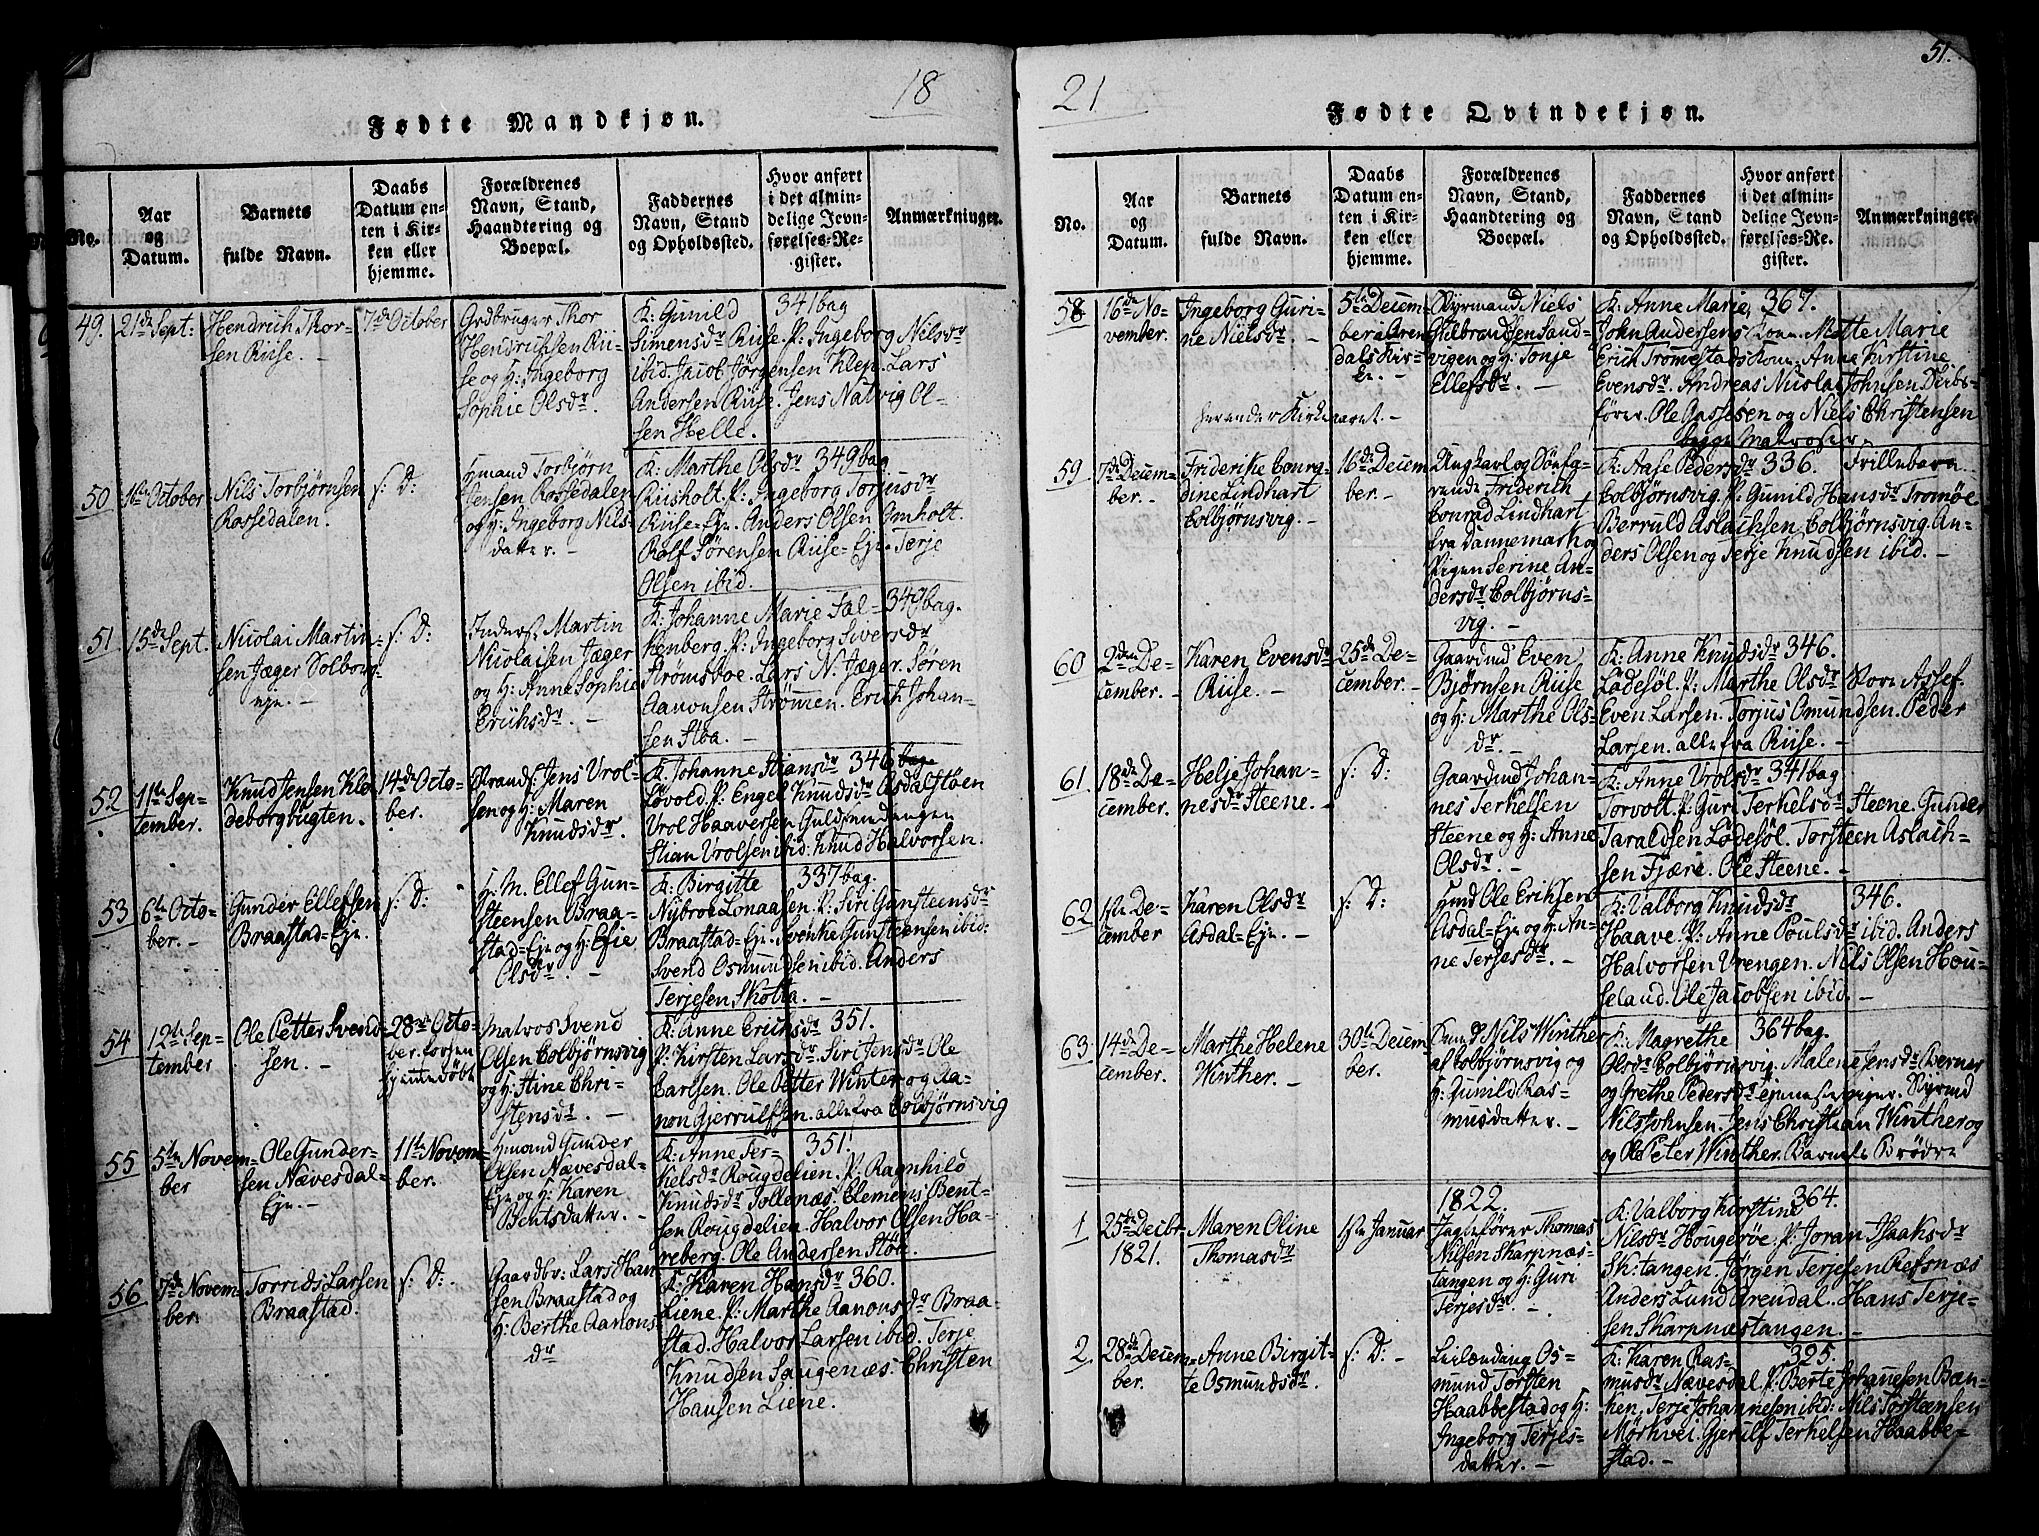 18
Fødte Mandkjøn.
No.
Aar
og
Datum.
Barnets
fulde Navn.
Daabs
Datum en-
ten i Kir-
ken eller
hjemme.
Forældrenes
Navn, Stand,
Haandtering og
Boepæl.
Faddernes
Navn, Stand
og Opholdssted.
Hvor anført
i det almin-
delige Jevn-
førelses-Re-
gister.
Anmærkninger.
49.
21de Sept:
Hendrich Thor-
sen Riise. -
7de October
Grdbruger Thor
Hendrichsen Rii-
se og H: Ingeborg
Sophie Olsdr.
K: Gunild 341 bag
Simensdr Riise. P: Ingeborg Nilsdr
ibid. Jacob Jørgensen Klep. Lars
Andersen Riise. Jens Natvig Ol-
sen Helle.
50
October
Nils Torbjørnsen
Rossedalen.
s: D:
Hmand Torbjørn
Jensen Rossedalen
og H: Ingeborg Nils-
datter. -
K: Marthe Olsdr 349 bag
Riisholt. P: Ingeborg Torjusdr
Riise-Eje. Anders Olsen Omholt.
Rolf Sørensen Riise-Eje. Terje
Olsen ibid.
51.
15de Sept.
Nicolai Martin-
sen Jæger Solborg-
eje. -
s: D:
Inders. Martin
Nicolaisen Jæger
og H: Anne Sophie
Erichsdr. -
K: Johanne Marie Fal- 349 bag.
kenberg. P: Ingeborg Siversdr
Strømsboe. Lars N. Jæger. Søren
Aanonsen Strømen. Erich Johan-
sen Stoa. -
52
11te Sep-
tember.
Knud Jensen Klø-
deborgbugten.
14de Octo-
ber.
Strands: Jens Vrol-
sen og H: Maren
Knudsdr.
K: Johanne Stiansdr 346 bag
Løvold. P: Engel Knudsdr Asdalstøen
Vrol Haaversen Guldsmedengen
Stian Vrolsen ibid. Knud Halvorsen.
53
6te Octo-
ber. -
Gunder Ellefsen
Braastad-Eje.
s: D:
H. M. Ellef Gun-
steensen Braa-
stad-Eje og H: Efie
Olsdr. -
K: Birgitte 337 bag.
Nybroe Lonaasen. P: Siri Gunsteensdr
Braastad-Eje. Svenke Gunsteensen ibid:
Svend Osmundsen ibid. Anders
Terjesen Skolta. -
54
12te Sep-
tember
Ole Petter Svend-
sen. -
28de Octo-
ber.
hjemmedøbt
Matros Svend
Olsen Colbjørnsvig
og H: Stine Chri-
stensdr. -
K: Anne Erichsdr 351.
P: Kirsten Larsdr. Siri Jensdr Ole
Carlsen. Ole Petter Winter og Aa-
non Gjerrulfsen. alle fra Colbjørnsvig
55
5te Novem-
ber
Ole Gunder-
sen Nævesdal-
Eje. -
11te Novem-
ber.
Hmand Gunder
Olsen Nævesdal-
Eje og H: Karen
Bentsdatter. -
K: Anne Ter- 351.
kelsdr Rougdelien. P: Ragnhild
Knudsdr Jollenæs. Clemens Bent-
sen Rougdelien. Halvor Olsen Ha-
reberg. Ole Andersen Støe.
56
7de Novem-
ber.
Torrids Larsen
Braastad.
s: D:
Gaardbr: Lars Han-
sen Braastad og
H: Berthe Aanons-
dr
K: Karen Hansdr 360.
Liene. P: Marthe Aanonsdr Braa-
stad. Halvor Larsen ibid. Terje
Knudsen Saugenæs. Christen
Hansen Liene.
51.
21
Fødte Qvindekjøn.
No.
Aar
og
Datum.
Barnets
fulde Navn.
Daabs
Datum en-
ten i Kir-
ken eller
hjemme.
Forældrenes
Navn, Stand,
Haandtering og
Boepæl.
Faddernes
Navn, Stand
og Opholdssted.
Hvor anført
i det almin-
delige Jevn-
førelses-Re-
gister.
Anmærkninger.
58
16de No-
vember.
Ingeborg Guri-
ne Nielsdr. -
Kirkeaaret. -
5te Decem-
ber i Aren-
dals Kir-
ke. -
Styrmand Niels
Gulbrandsen Sand-
vigen og H: Tonje
Ellefsdr. -
K: Anne Marie, 367.
John Andersens Kone. Mette Marie
Erich Tromestads Kone. Anne Kirstine
Evensdr. Andreas Nicolai Johnsen Skibs-
fører. Ole Aassesen og Niels Christensen
begge Matroser.
59
7de Decem-
ber. -
Friderike Bourg-
dine Lindhart
Colbjørnsvig. -
16de Decem
ber. -
Ungkarl og Søefa-
rende Friderich
Conrad Lindhart
fra Dannemark og
Pigen Serine An-
dersdr Colbjørns-
vig. -
K: Aase Pedersdr 336. Frillebarn.
Colbjørnsvig. P: Gunild Hansdr Tromøe
Berruld Aslachsen Colbjørnsvig. An-
ders Olsen og Terje Knudsen ibid. -
60
2den De-
cember. -
Karen Evensdr
Riise. -
25de De-
cember. -
Gaardmd Even
Bjørnsen Riise
og H: Marthe Ols-
dr. -
K: Anne Knudsdr 346.
Lødesøl. P: Marthe Olsdr
Even Larsen. Torjus Omundsen. Peder
Larsen. alle fra Riise. -
61.
18de De-
cember.
Helje Johan-
nesdr Steene. -
s: D:
Gaardmd Johan-
nes Terkelsen
Steene og H: Anne
Olsdr. -
K: Anne Vrolsdr 341 bag
Torvolt. P: Guri Terkelsdr Steene. Gunder
Taraldsen Lødesøl. Torsteen Aslach-
sen Fjære. Ole Steene. -
62
1ste De-
cember
Karen Olsdr
Asdal-Eje. -
s: D:
Hmd Ole Eriksen
Asdal-Eje og H: An-
ne Terjesdr. -
K: Valborg Knudsdr 346.
Haave. P: Anne Poulsdr ibid. Anders
Halvorsen Vrengen. Nils Olsen Hou-
seland. Ole Jacobsen ibid. -
63
14de De-
cember.
Marthe Helene
Winther. -
30te Decem
ber.
Nils Winther
af Colbjørnsvig og
H: Gunild Ras-
musdatter. -
K: Magrethe 364 bag.
Olsdr Colbjørnsvig. Malene Jensdr
og Grethe Pedersdr
Nils Johnsen. Jens Christian Winther og
og Ole Peter Winther. Barnets Brødre
1
25de Decbr
1821.
Maren Oline
Thomasdr
1ste Januar
1822.
Jagtefører Thomas
Nilsen Skarpnæs-
tangen og H: Guri
Terjesdr. -
K: Valborg Kirstine 364.
Nilsdr Hougerøe. P: Joran Isaksdr
Sk: tangen. Jørgen Terjesen Refsnæs
Anders Lund Arendal. Hans Terje-
sen Skarpnæstangen. -
2
28de Decem-
ber.
Anne Birgit-
te Osmundsdr.
s: D: -
Leilænding Os-
mund Torsten
Haabbestad og H:
Ingeborg Terjes-
datter. -
K: Karen Ras- 325.
musdr Nævesdal. P: Berte Johannesen Bæn-
ken. Terje Johannesen ibid: Nils Torstensen
Mørkvei. Gjerulf Terkelsen Haabbe-
stad. -